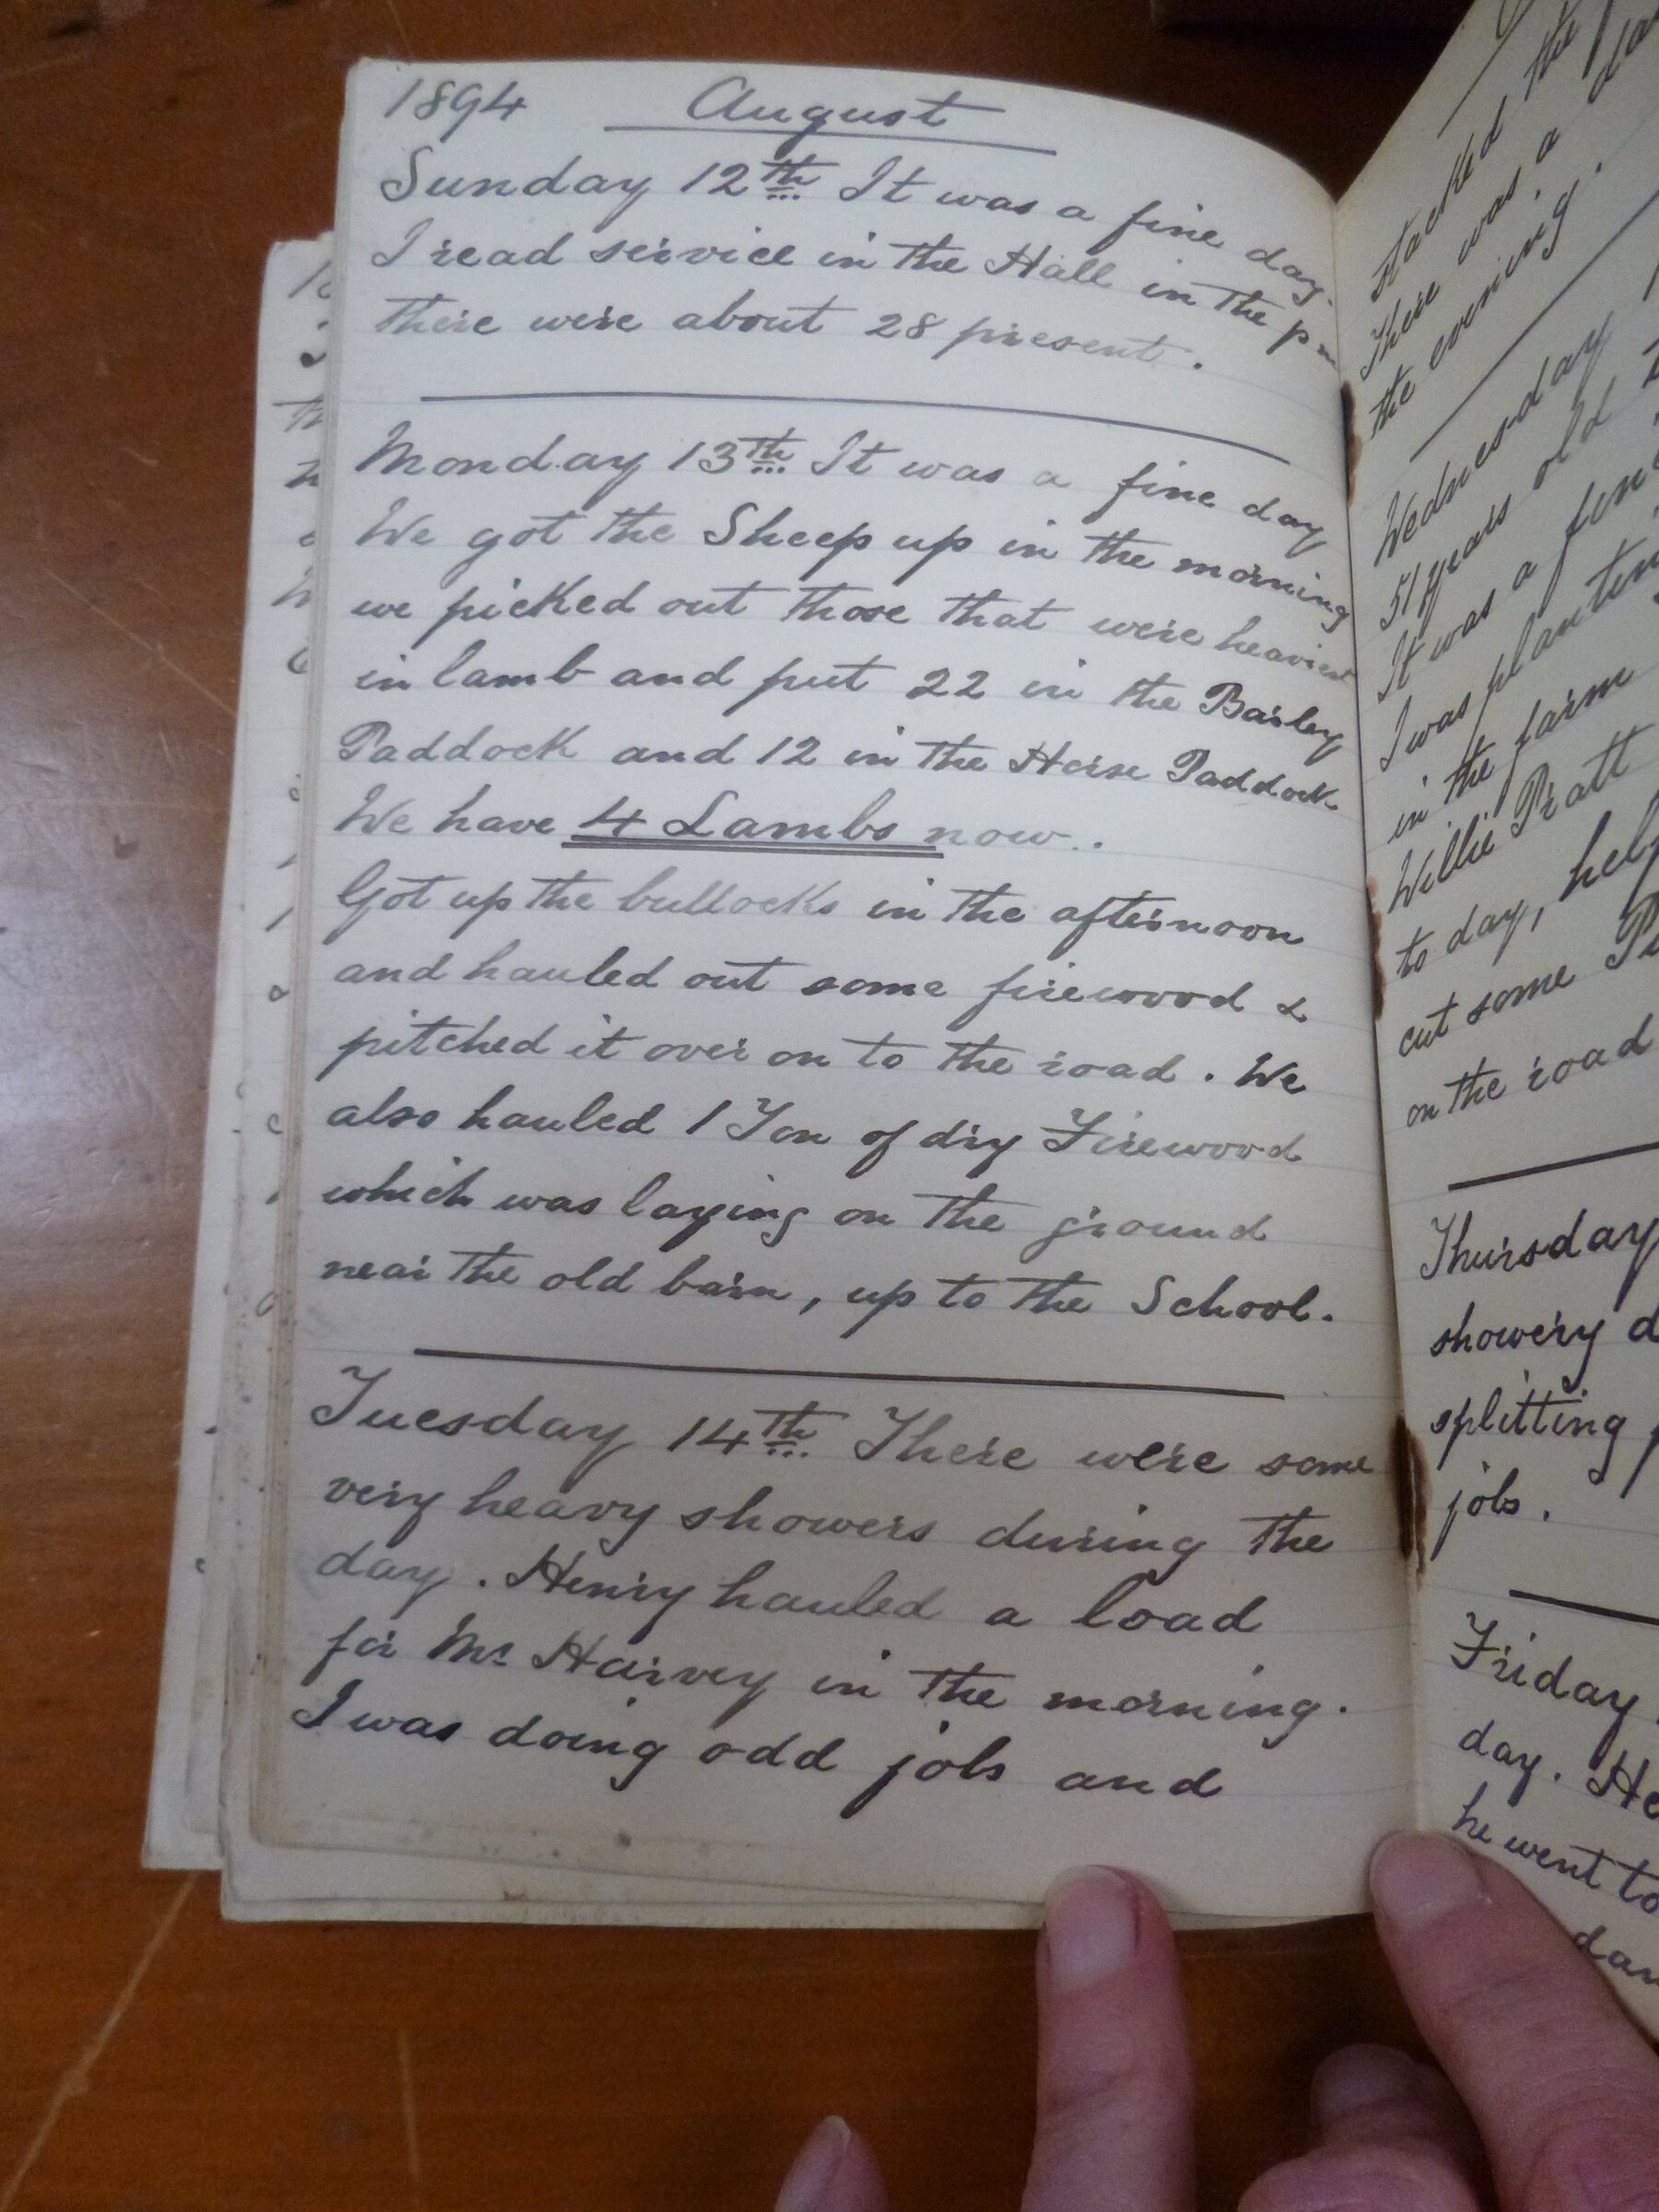 1894 August
Sunday 12th It was a fine day.
I read service in the Hall in the pm
there were about 28 present.
Monday 13th It was a fine day
We got the Sheep up in the morning
we picked out those that were heaviest
in lamb and put 22 in the Barley
Paddock and 12 in the Horse Paddock
We have 4 Lambs now..
Got up the bullocks in the afternoon
and hauled out some firewood &
pitched it over on to the road. We
also hauled 1 Ton of dry Firewood
which was laying on the ground
near the old barn, up to the School.
Tuesday 14th There were some
very heavy showers during the
day. Henry hauled a load
for Mr Harvey in the morning.
I was doing odd jobs and
stacked the
There was a
the evening.
Wednesday
51 years old
It was a fine
I was planting
in the farm
Willie Pratt
to day, help
cut some
on the road
Thursday
showery d
splitting
jobs.
Friday
day. He
he went to